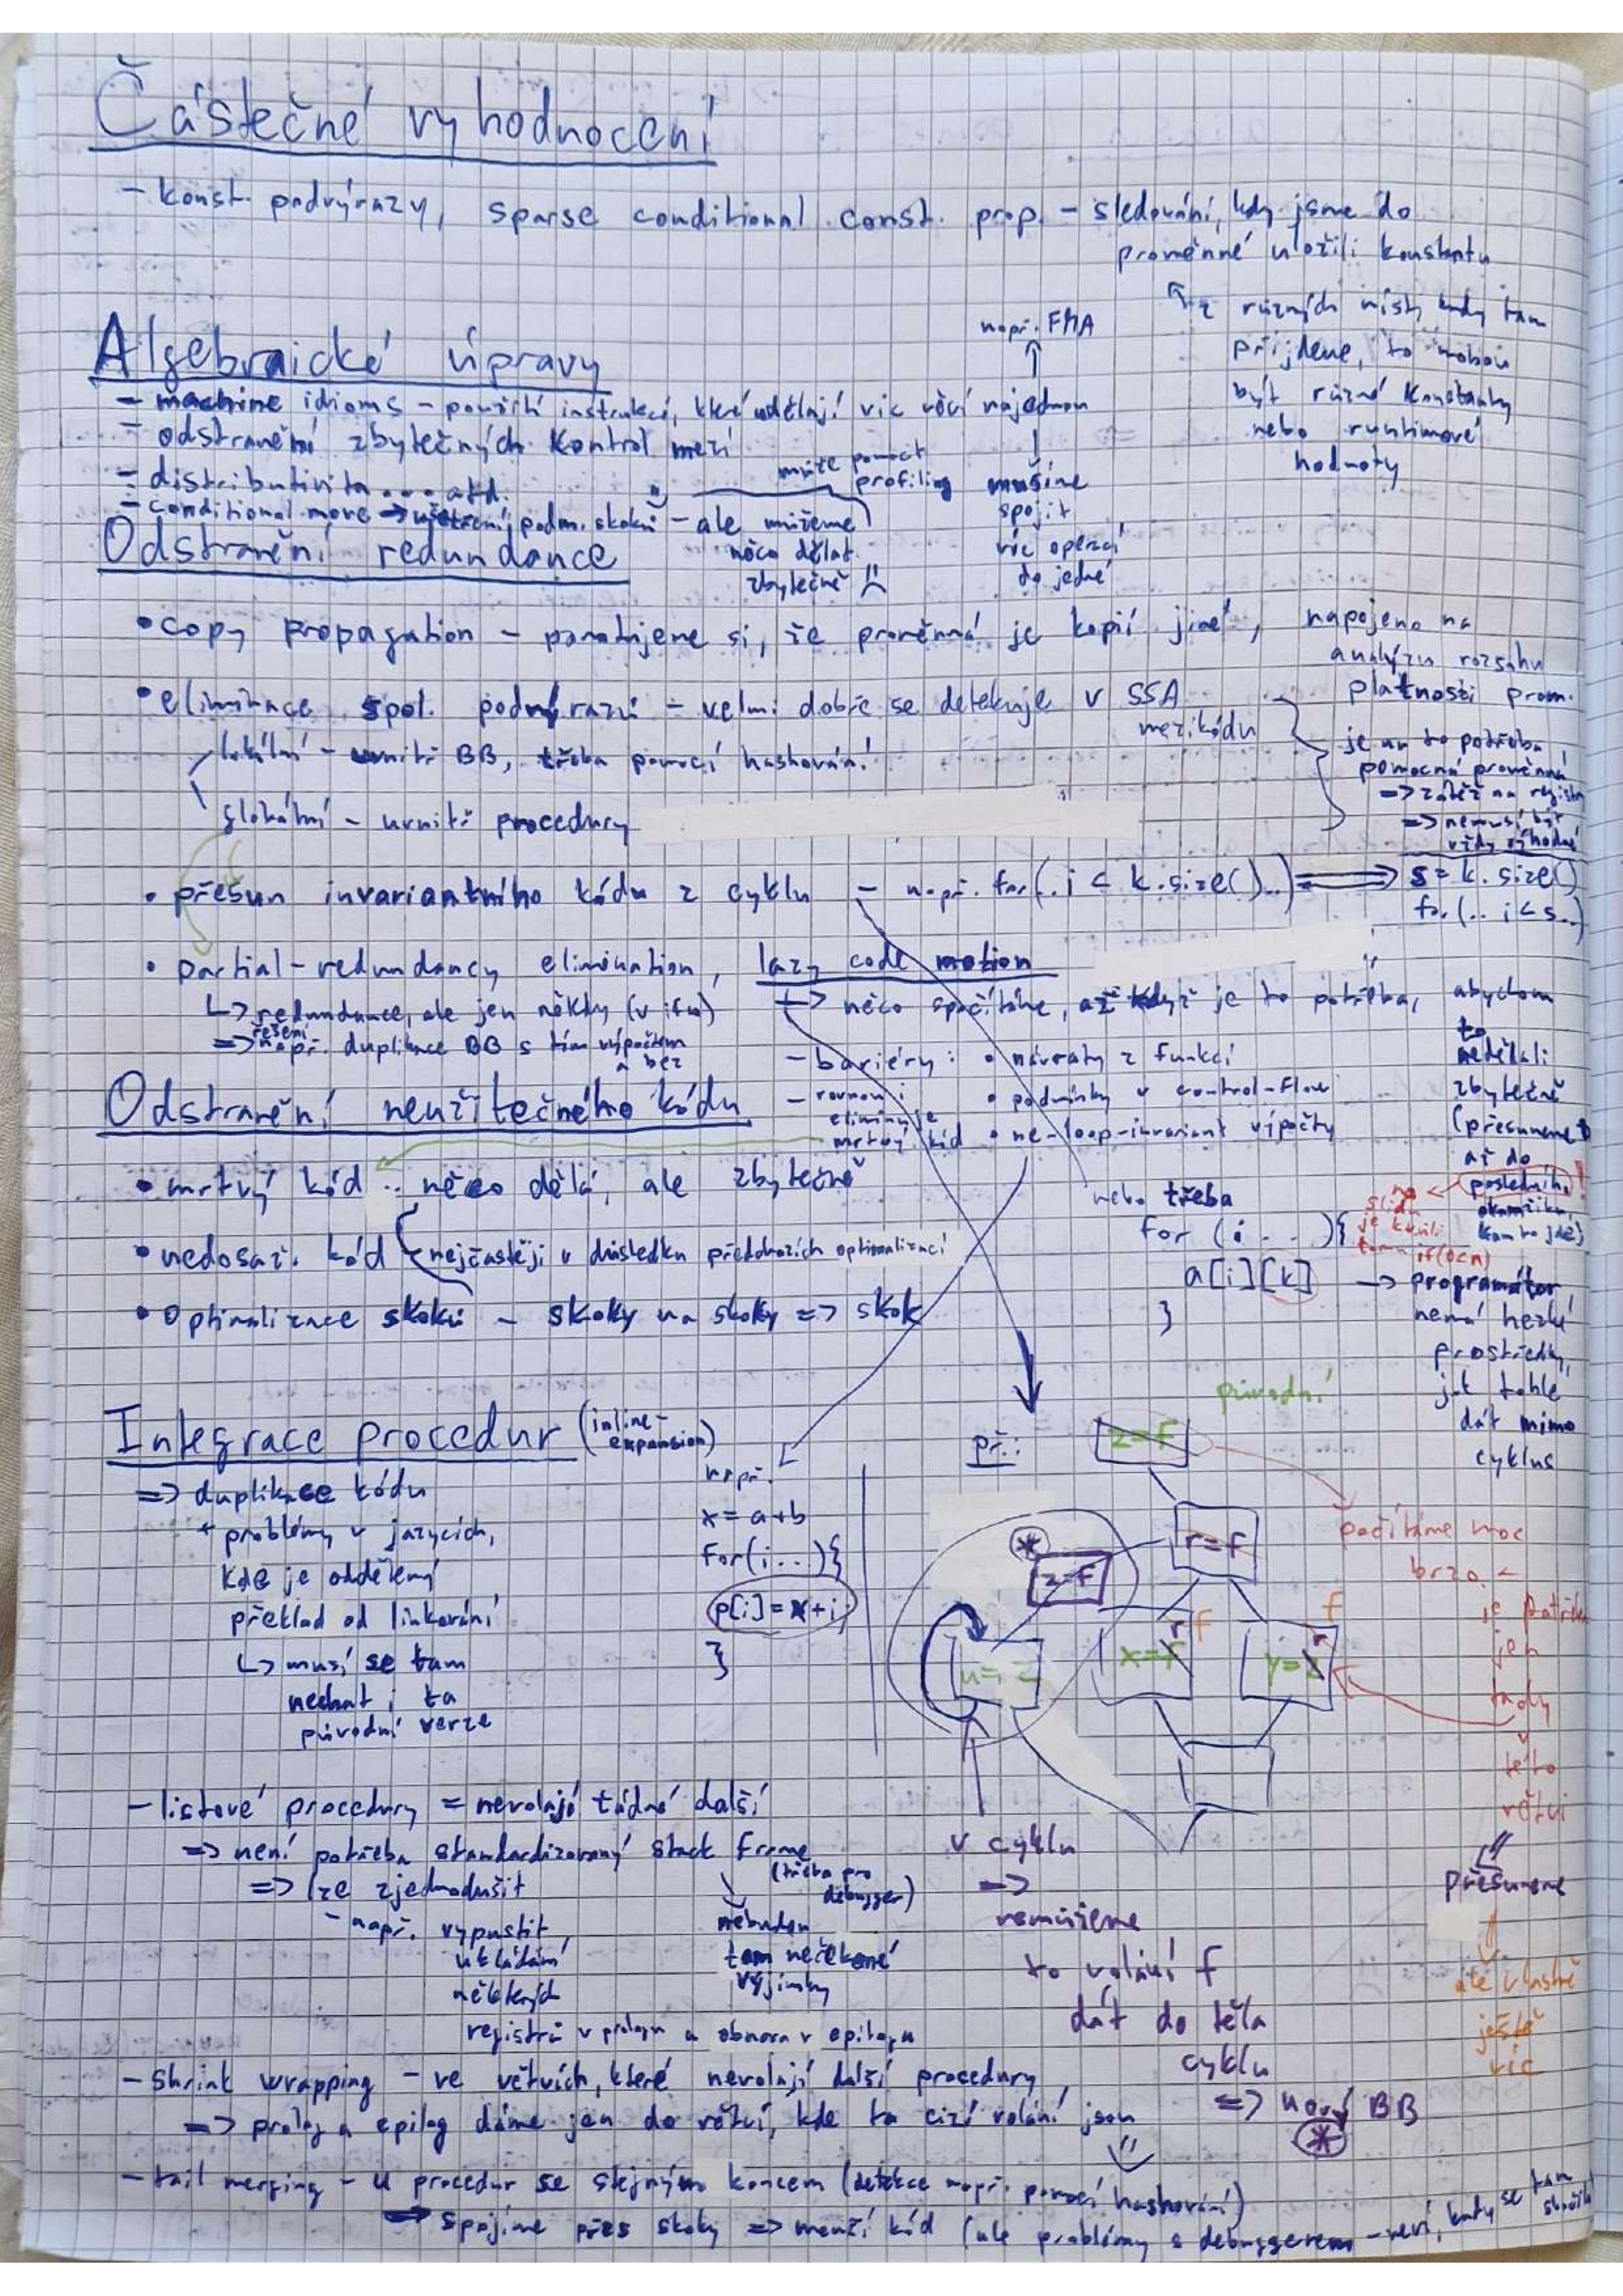 Částečné vyhodnocení
- konst. podvýrazy, sparse conditional const. prop. - sledování, kdy jsme do
proměnné uložili konstantu
z různých míst, kudy tam
přijdeme, to mohou
být různé konstanty
nebo runtimové
hodnoty
Algebraické úpravy
např. FMA
- machine idioms - použití instrukcí, které udělají víc věcí najednou
- odstranění zbytečných kontrol mezí
musíme
spojit
víc operací
do jedné
- distributivita ... atd.
- conditional move → ušetření podm. skoků - ale můžeme
něco dělat
zbytečně
může pomoct
profiling
Odstranění redundance
• copy propagation - pamatujeme si, že proměnná je kopií jiné, napojeno na
analýzu rozsahu
platnosti prom.
• eliminace spol. podvýrazů - velmi dobře se detekuje v SSA
mezikódu
lokální - uvnitř BB, třeba pomocí hashování
globální - uvnitř procedury
je na to potřeba
pomocná proměnná
=> zátěž na registry
=> nemusí být
vždy výhodné
• přesun invariantního kódu z cyklu - např. for(.. i < k.size()..) => s = k.size()
for(.. i < s..)
• partial-redundancy elimination, lazy code motion
↳ redundance, ale jen někdy (v ifu)
=> řešení
např. duplikace BB s tím výpočtem
a bez
↳ něco spočítáme, až když je to potřeba, abychom
to
nedělali
zbytečně
(přesuneme
až do
posledního
okamžiku,
kam to jde)
- bariéry: • návraty z funkcí
• podmínky v control-flow
• ne-loop-invariant výpočty
- rovnou i
eliminuje
mrtvý kód
Odstranění neužitečného kódu
• mrtvý kód .. něco dělá, ale zbytečně
• nedosaž. kód
nejčastěji v důsledku předchozích optimalizací
• optimalizace skoků - skoky na skoky => skok
nebo třeba
for (i . . . ){
a[i][k]
}
na
slidu
je kvůli
tomu if(0<n)
→ programátor
nemá hezké
prostředky,
jak tohle
dát mimo
cyklus
Integrace procedur (inline-
expansion)
=> duplikace kódu
+ problémy v jazycích,
kde je oddělený
překlad od linkování
↳ musí se tam
nechat i ta
původní verze
např.
x = a+b
for(i..){
p[i] = x+i
}
př.:
původní
z=f
r=f
*
z=f
u=z
x=r
f
y=r
f
počítáme moc
brzo
je potřeba
jen
tady
v
této
větvi
přesuneme
ale vlastně
ještě
víc
v cyklu
=>
nemůžeme
to volání f
dát do těla
cyklu
=> nový BB
*
- listové procedury = nevolají žádné další
=> není potřeba standardizovaný stack frame
(třeba pro
debugger)
=> lze zjednodušit
- např. vypustit
ukládání
některých
registrů v prologu a obnova v epilogu
nebudou
tam nečekané
výjimky
- shrink wrapping - ve větvích, které nevolají další procedury
=> prolog a epilog dáme jen do větví, kde ta cizí volání jsou
- tail merging - u procedur se stejným koncem (detekce např. pomocí hashování)
=> spojíme přes skoky => menší kód (ale problémy s debuggerem - neví, kudy se tam
skočilo